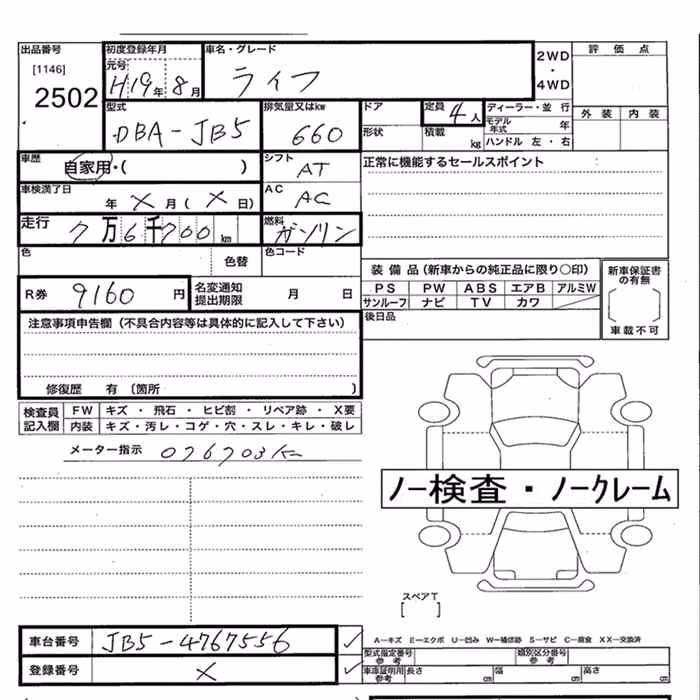 出品番号 初度登録年月 車名・グレード 2WD・4WD 評価点
[1146] 元号
2502 H19年8月 ライフ
外装 内装
型式 排気量又はkw ドア 定員 4人 ディーラー・並行
DBA-JB5 660 形状 積載 kg モデル年式 年
ハンドル 左・右
車歴 自家用・( ) シフト AT 正常に機能するセールスポイント :
車検満了日 年 X 月 ( X 日) AC AC
走行 7万6千700km 燃料 ガソリン
色 色替 色コード
装備品(新車からの純正品に限り○印) 新車保証書の有無
R券 9160円 名変通知提出期限 月 日
PS PW ABS エアB アルミW
サンルーフ ナビ TV カワ
後日品
車載不可
注意事項申告欄(不具合内容等は具体的に記入して下さい)
修復歴 有 (箇所 )
検査員記入欄 FW キズ・飛石・ヒビ割・リペア跡・X要
内装 キズ・汚レ・コゲ・穴・スレ・キレ・破レ
メーター指示 076703K
ノー検査・ノークレーム
スペアT
[ ]
車台番号 JB5-4767556
A-キズ E-エクボ U-凹み W-補修跡 S-サビ C-腐食 XX-交換済
登録番号 X
型式指定番号 参考 類別区分番号 参考
車庫証明用 参考 長さ cm 幅 cm 高さ cm